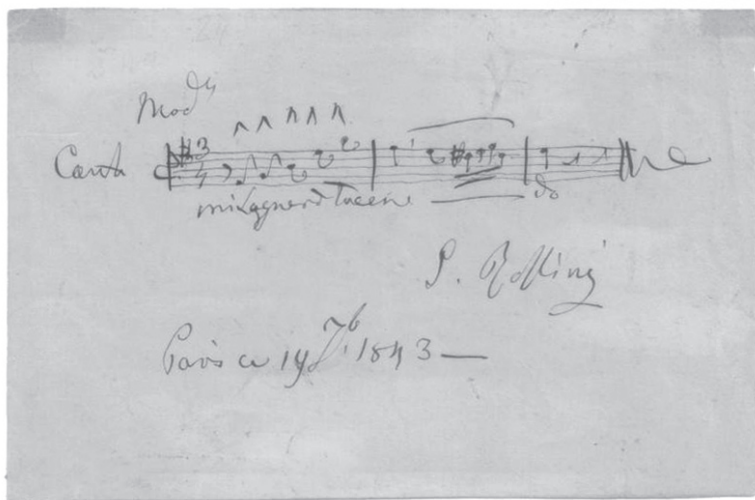 Mod.to
Canto
mi lagnerò tacen do
G. Rossini
Paris ce 19 7b. 1843